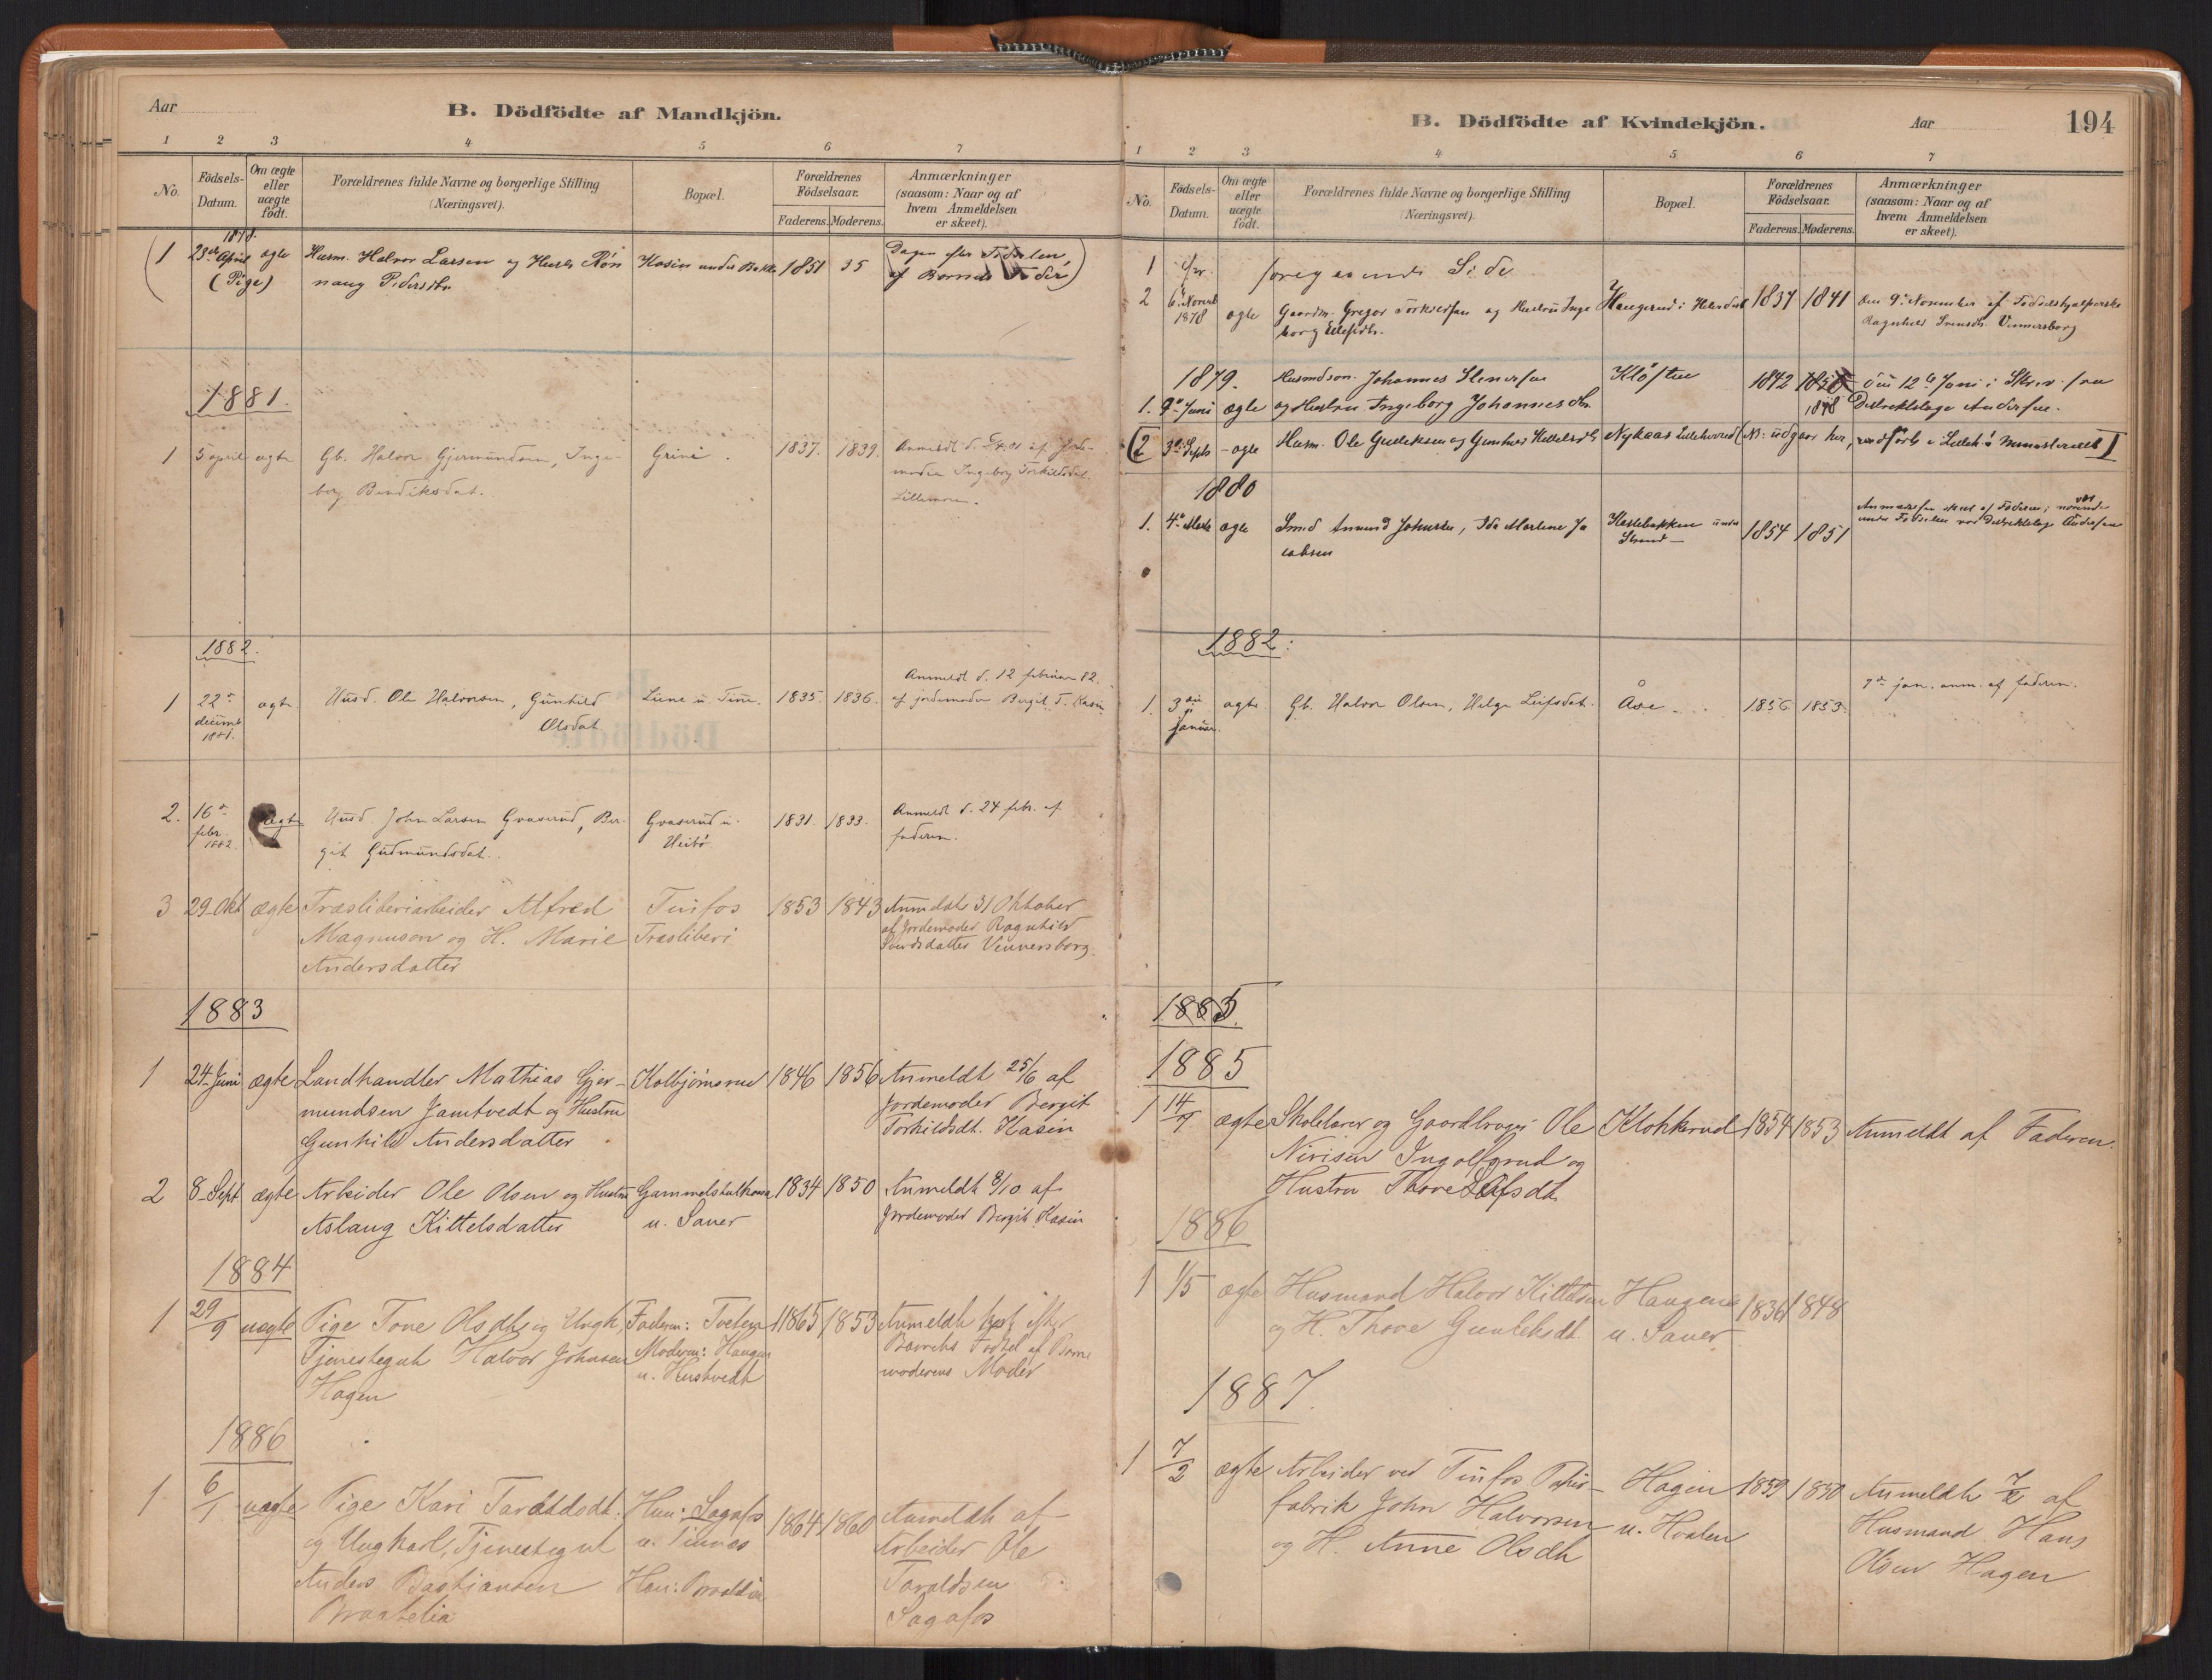 Aar
B. Dödfödte af Mandkjön.
1 2 3 4 5 6 7
No.
Födsels-
Datum.
Om ægte
eller
uægte
födt.
Forældrenes fulde Navne og borgerlige Stilling
(Næringsvei).
Bopæl.
Forældrenes
Födselsaar.
Faderens. Moderens.
Anmærkninger
(saasom: Naar og af
hvem Anmeldelsen
er skeet).
1878.
(1 23de April ægte Husm. Halvor Larsen og Hustr Røn Hasin under Bakke 1851 35 Dagen efter Fødselen,
(Pige) naug Pedersdtr. af Barnets Fader)
1881.
1 5 april ægte Gb. Halvor Gjermundsen, Inge- Grini. 1837. 1839. Anmeldt d. af Jorde-
borg Bendiksdat. moder Ingeborg Torkildsdat.
Lillemoen.
1882.
1 22de ægte. Husd. Ole Halvorsen, Gunhild Lune u Tinne. 1835. 1836. Anmeldt d. 12 februar 82.
decemb. Olsdat. af jordemoder Bergit T. Hasin
1881.
2. 16de ægte Husd. John Larsen Graserud, Ber- Graserud u. 1831. 1833. Anmeldt d. 24 febr. af
febr. git Gudmundsdat. Heibö faderen.
1882.
3 29 Okt ægte Træsliberiarbeider Alfred Tinfos 1853 1843 Anmeldt 31 Oktober
Magnuson og H. Marie Træsliberi af Jordemoder Ragnhild
Andersdatter Svendsdatter Vennersborg.
1883
1 24 Juni ægte Landhandler Mathias Gjer- Kolbjørnsrud 1846 1856 Anmeldt 25/6 af
mundsen Jamtvedt og Hustru Jordemoder Bergit
Gunhild Andersdatter Torkildsdt. Hasin
2 8 Sept ægte Arbeider Ole Olsen og Hustru Gammelstulkaasa 1834 1850 Anmeldt 8/10 af
Aslaug Kittelsdatter u. Sauer Jordemoder Bergit Hasin
1884
1 29/9 uægte Pige Tone Olsdt. og Ungk. Faderen: Tveten 1865 1853 Anmeldt efter
Tjenestegut Halvor Johnsen Moderen: Haugen Barnets Fødsel af Barne
Hagen u. Hustvedt moderens Moder
1886
1 6/1 uægte Pige Kari Taraldsdt. Hun: Sagafos 1864 1860 Anmeldt af
og Ungkarl, Tjenestegut u. Tinnes Arbeider Ole
Anders Bastjansen Han: Taraldsen
Braatelia Sagafos
B. Dödfödte af Kvindekjön.
Aar
194
1 2 3 4 5 6 7
No.
Födsels-
Datum.
Om ægte
eller
uægte
födt.
Forældrenes fulde Navne og borgerlige Stilling
(Næringsvei).
Bopæl.
Forældrenes
Födselsaar.
Faderens. Moderens.
Anmærkninger
(saasom: Naar og af
hvem Anmeldelsen
er skeet).
1 cfr. foregaaende Side
2 6te Novemb ægte Gaardm. Gregar Torkildsen og Hustru Inge Haugerud i Hiterdal 1837 1841 den 9de November af Fødselshjælperske
1878 borg Eilefsdtr. Ragnhild Svensdtr. Vennersborg
1879. Husmdson. Johannes Stenersen Kløften 1842 den 12te Juni i Skriv. fra
1. 9de Juni ægte og Hustru Ingeborg Johannesdtr. 1848 Distriktslæge Andersen.
(2 3de Septb ægte Husm. Ole Gulleksen og Gunhild Kittelsdtr Nykaas Lilleherred (NB: udgaar her, indført i Lilleh's Ministerialb I
1880
1. 4de Marts ægte Smed Amund Johnsen, Ida Marlene Ja Hestebakken under 1854 1851 Anmeldelsen skeet af Faderen; nærværende
cobsen Strand under Fødselen var Distriktslæge Andersen
1882:
1. 3die ægte Gb. Halvor Olsen, Helge Leifsdat. Åse 1856 1853. 7de jan. anm. af faderen.
januar.
1883.
1885
1 14/9 ægte Skolelærer og Gaardbruger Ole Klokkerud 1854 1853 Anmeldt af Faderen.
Nirisen Ingolfsrud og
Hustru Thore Olafsdt.
1886
1 1/5 ægte Husmand Halvor Kittelsen Haugene 1836 1848
og H. Thore Gunleksdt. u. Sauer
1887.
1 7/2 ægte Arbeider ved Tinfos Papir- Hagen 1859 1850 Anmeldt 7/2 af
fabrik John Halvorsen u. Hvalen Husmand Hans
og H. Anne Olsdt. Olsen Hagen